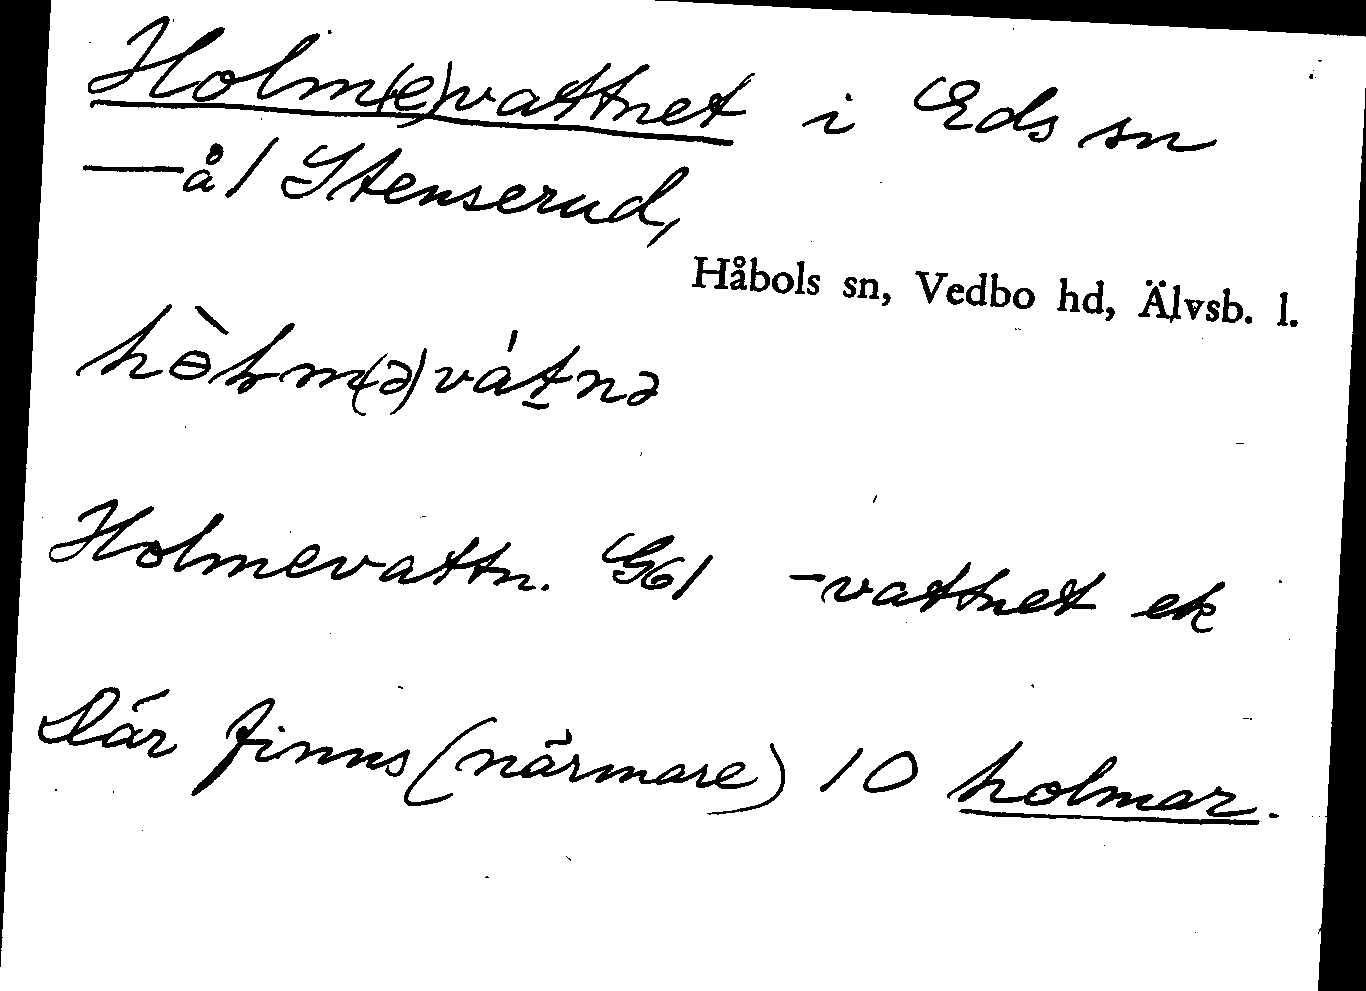 Holm(e)vattnet i Eds sn
—å/ Stenserud,
Håbols sn, Vedbo hd, Älvsb. l.
hɵ̀ɫm(ə)vát̠nə
Holmevattn. G61 -vattnet ek
Där finns (närmare) 10 holmar.